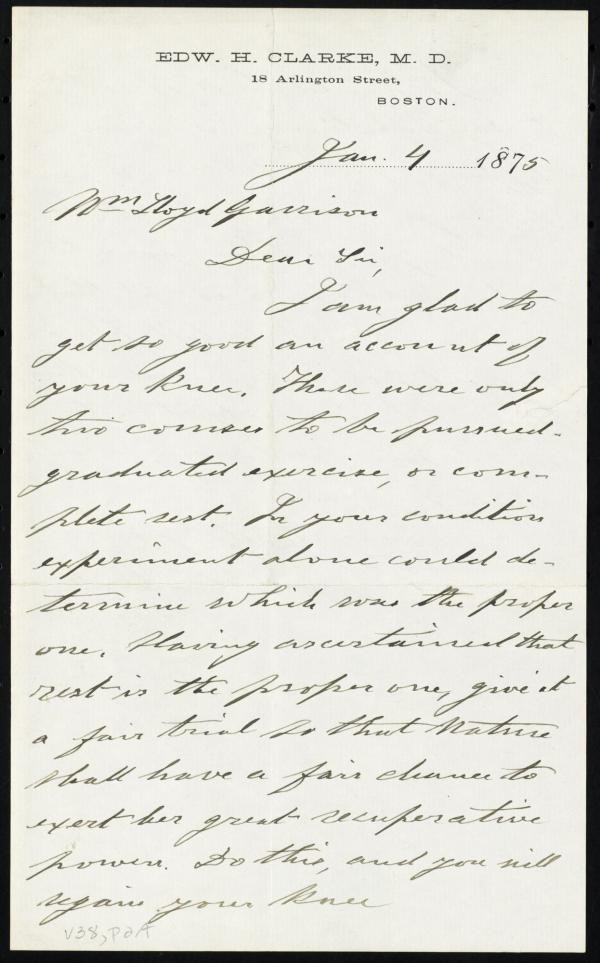 EDW. H. CLARKE, M. D.
18 Arlington Street,
BOSTON.
Jan. 4 1875
Wm Lloyd Garrison
Dear Sir,
I am glad to
get so good an account of
your knee. There were only
two courses to be pursued-
graduated exercise, or com-
plete rest. In your condition
experiment alone could de-
termine which was the proper
one. Having ascertained that
rest is the proper one, give it
a fair trial so that Nature
shall have a fair chance to
exert her great recuperative
power. Do this, and you will
regain your knee
V38, P2A